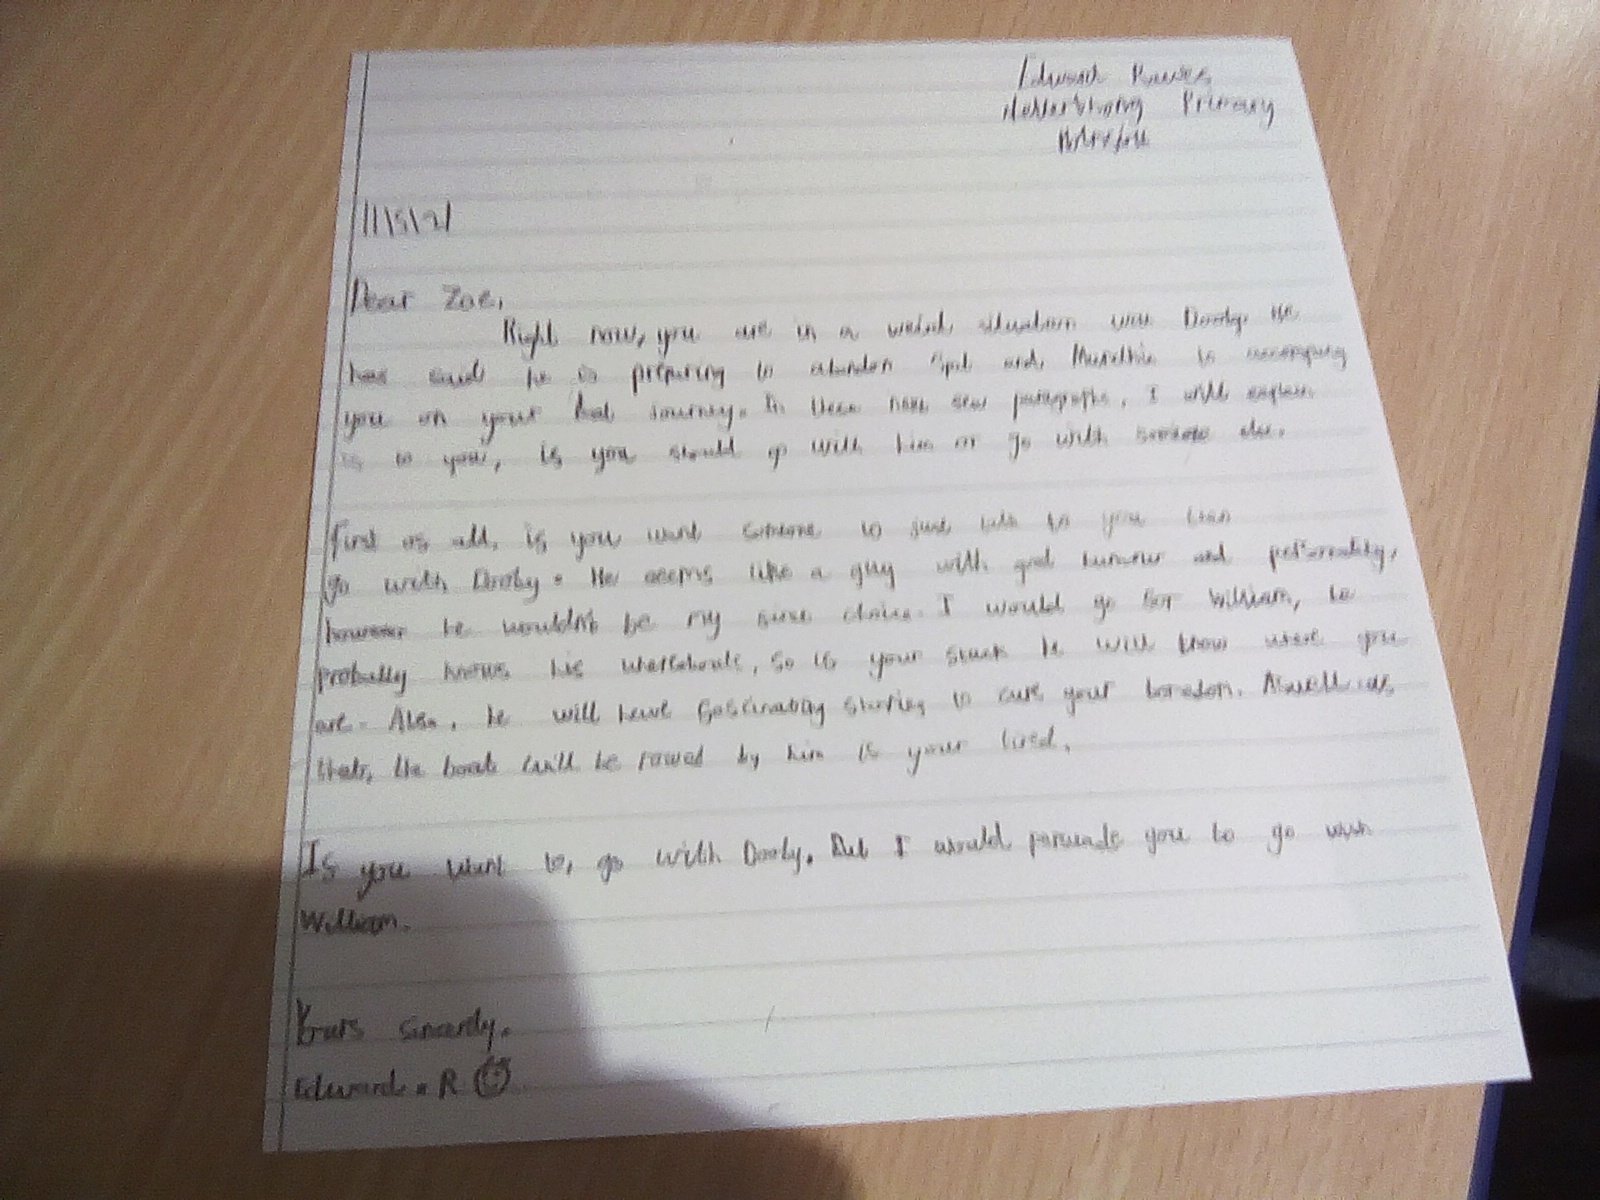 Edward
Primary
11/5/21
Dear Zoe,
Right now, you are in a weird situation with Dooby. He
has said he is preparing to abandon and is
you on your journey. In these next few paragraphs, I will explain
to you, is you should go with him or go with someone else.
First os all, is you want someone to just talk to you then
go with Dooby. He seems like a guy with good humour and personality,
however he wouldn't be my choice. I would go sor William, he
probably knows his whereabouts, so is your stuck he will know where you
are. Also, he will have sascinating to cure your boredom. Aswell as
that, the boat will be rowed by him is your tired.
Is you want to, go with Dooby. But I would you to go with
William.
Yours
Edward. R